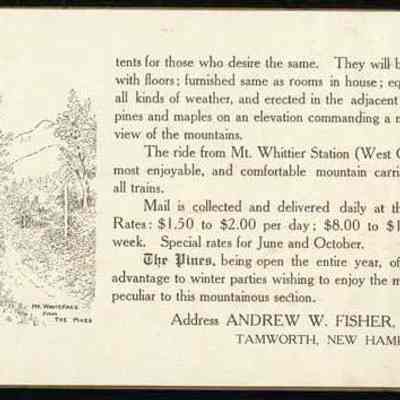 tents for those who desire the same. They will b
with floors; furnished same as rooms in house; eq
all kinds of weather, and erected in the adjacent
pines and maples on an elevation commanding a m
view of the mountains.
The ride from Mt. Whittier Station (West O
most enjoyable, and comfortable mountain carri
all trains.
Mail is collected and delivered daily at th
Rates: $1.50 to $2.00 per day; $8.00 to $1
week. Special rates for June and October.
The Pines, being open the entire year, of
advantage to winter parties wishing to enjoy the m
peculiar to this mountainous section.
Address ANDREW W. FISHER,
TAMWORTH, NEW HAMP
MT. WHITEFACE
FROM
THE PINES